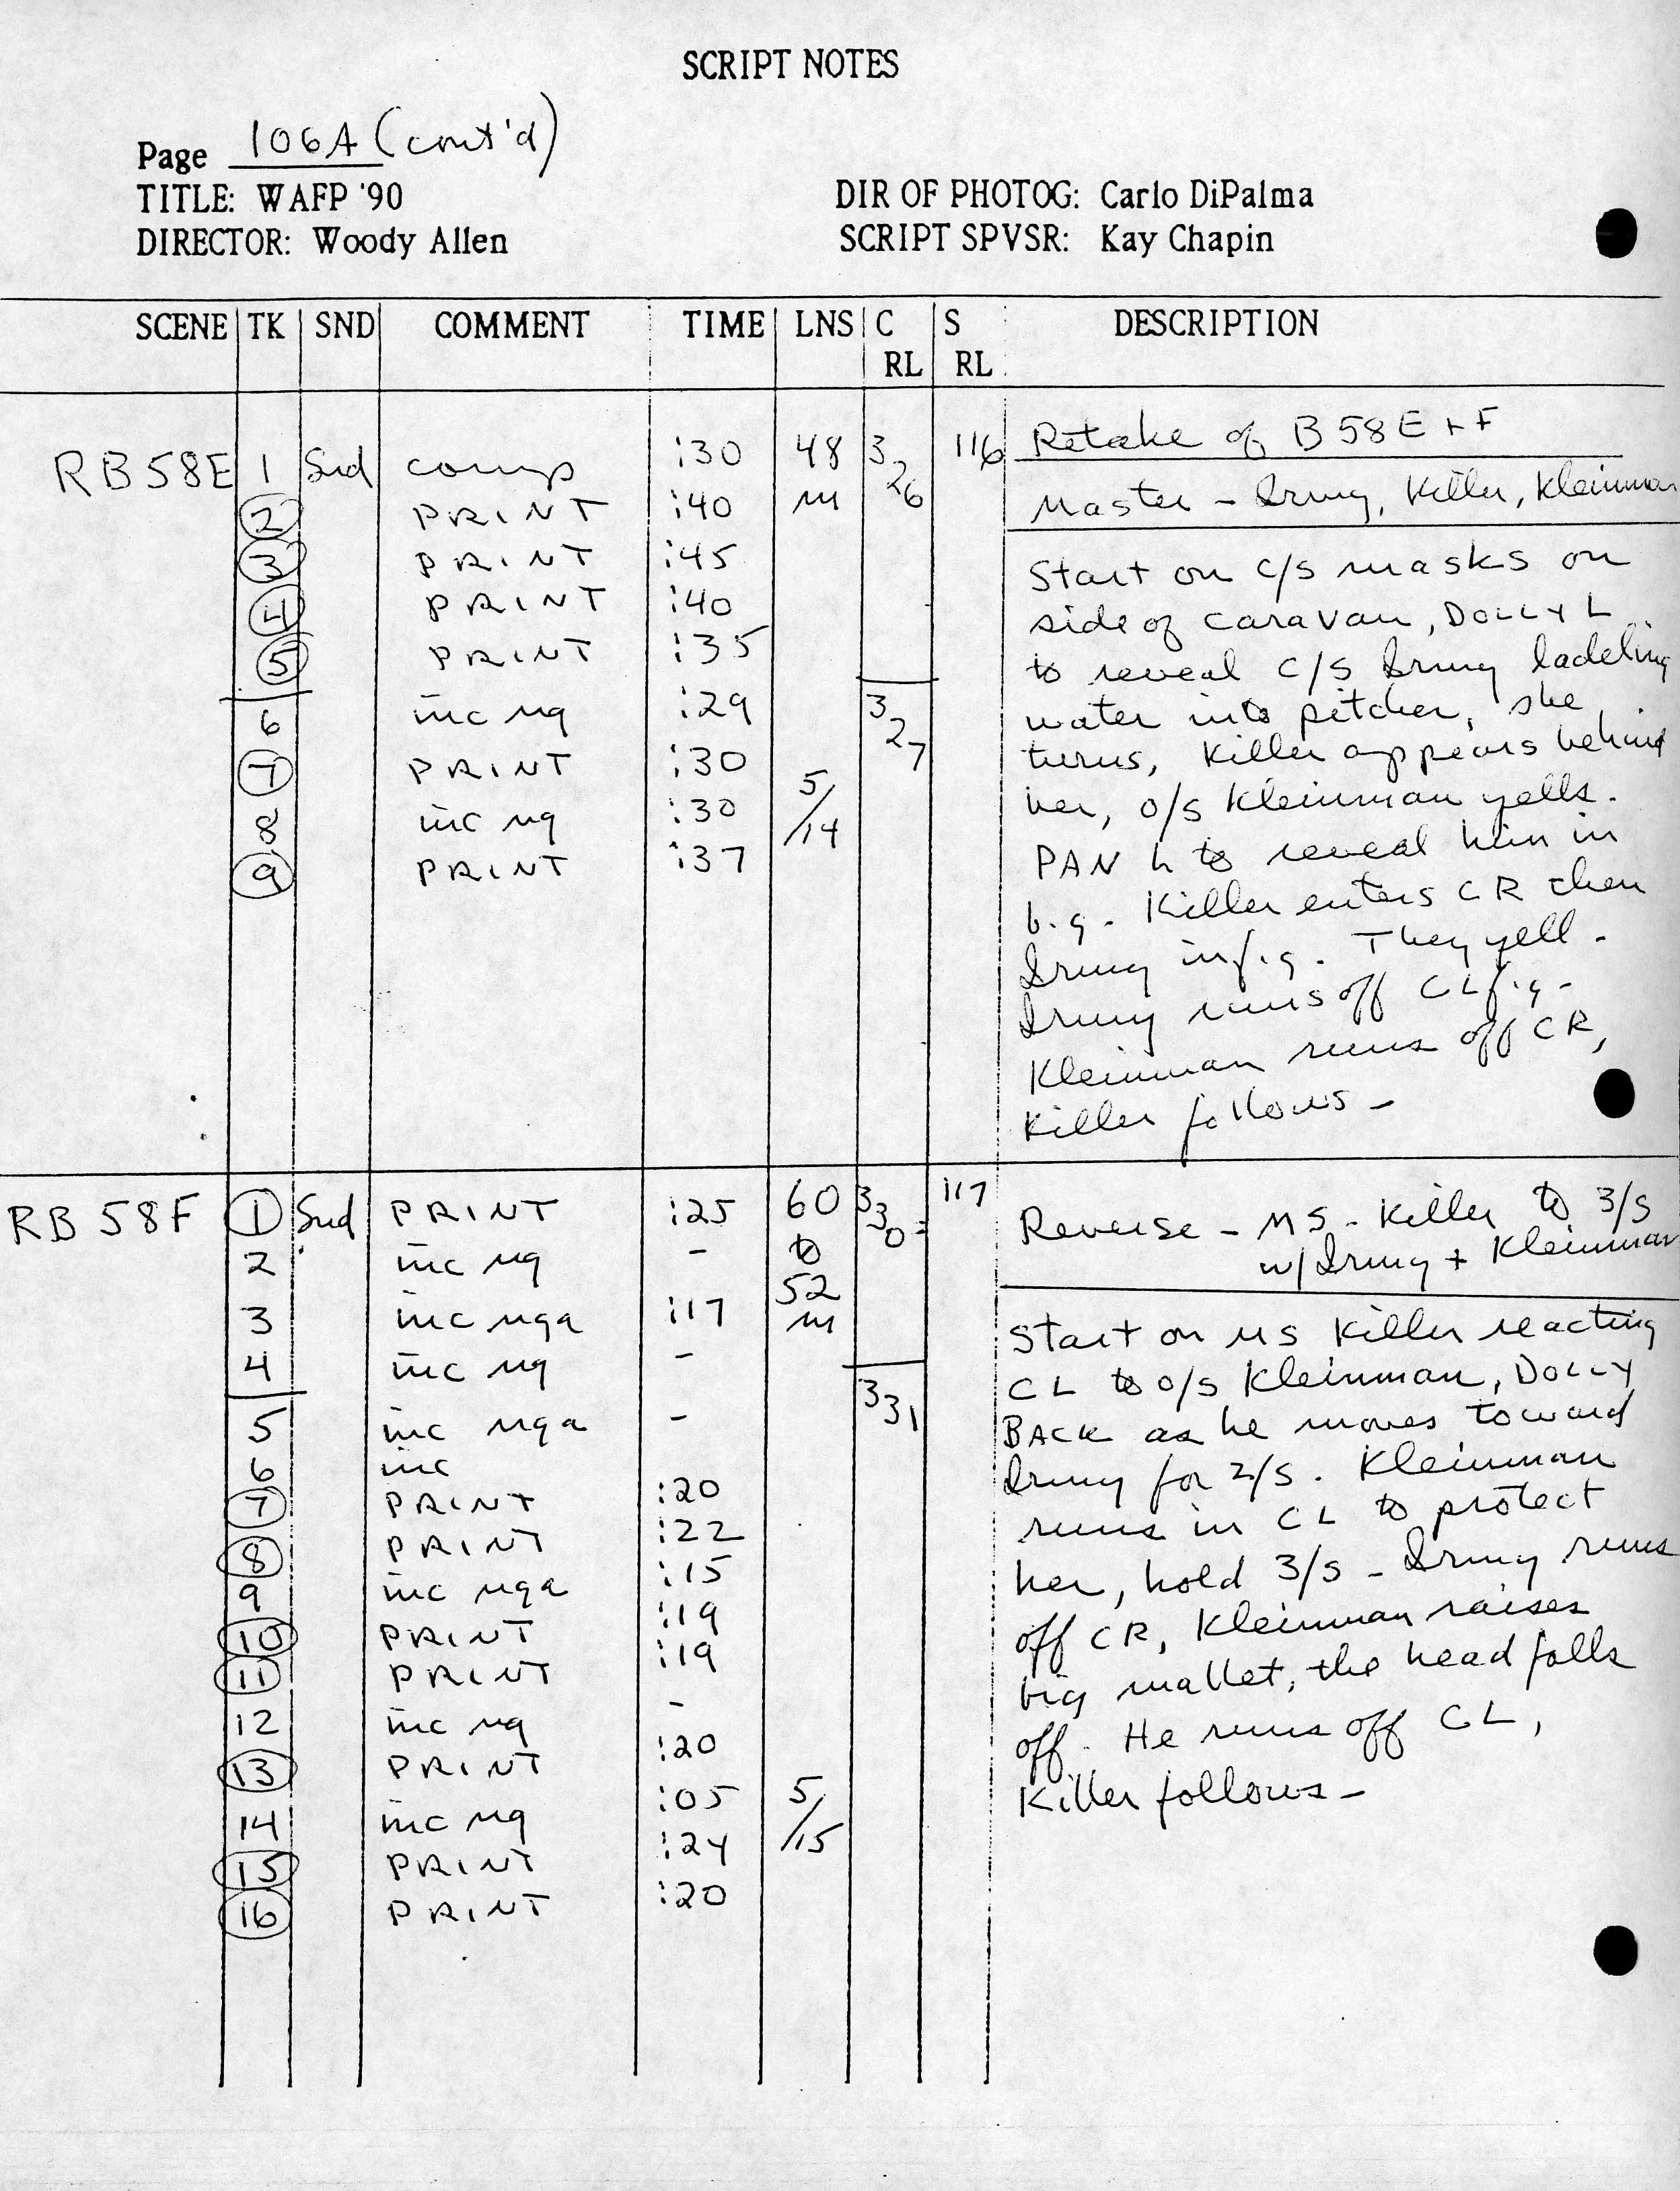 SCRIPT NOTES
Page 106A (cont'd)
TITLE: WAFP '90
DIRECTOR: Woody Allen
DIR OF PHOTOG: Carlo DiPalma
SCRIPT SPVSR: Kay Chapin
SCENE TK SND COMMENT TIME LNS C RL S RL DESCRIPTION
RB58E 1 Snd comp :30 48 326 116
2 PRINT :40 m
3 PRINT :45
4 PRINT :40
5 PRINT :35
6 inc ng :29 327
7 PRINT :30
8 inc ng :30 5/14
9 PRINT :37
Retake of B58E + F
Master - Irmy, Killer, Kleinman
Start on c/s masks on
side of caravan, DOLLY L
to reveal c/s Irmy ladeling
water into pitcher, she
turns, Killer appears behind
her, o/s Kleinman yells.
PAN L to reveal him in
b.g. Killer enters CR then
Irmy in f.g. They yell.
Irmy runs off CL f.g.
Kleinman runs off CR,
Killer follows -
RB 58F 1 Snd PRINT :25 60 330 117
2 inc ng - to
3 inc nga :17 52 m
4 inc ng -
5 inc nga - 331
6 inc
7 PRINT :20
8 PRINT :22
9 inc nga :15
10 PRINT :19
11 PRINT :19
12 inc ng -
13 PRINT :20
14 inc ng :05 5/15
15 PRINT :24
16 PRINT :20
Reverse - MS - Killer to 3/S
w/Irmy + Kleinman
Start on MS Killer reacting
CL to o/s Kleinman, DOLLY
BACK as he moves toward
Irmy for 2/S. Kleinman
runs in CL to protect
her, hold 3/S - Irmy runs
off CR, Kleinman raises
big mallet, the head falls
off. He runs off CL,
Killer follows -